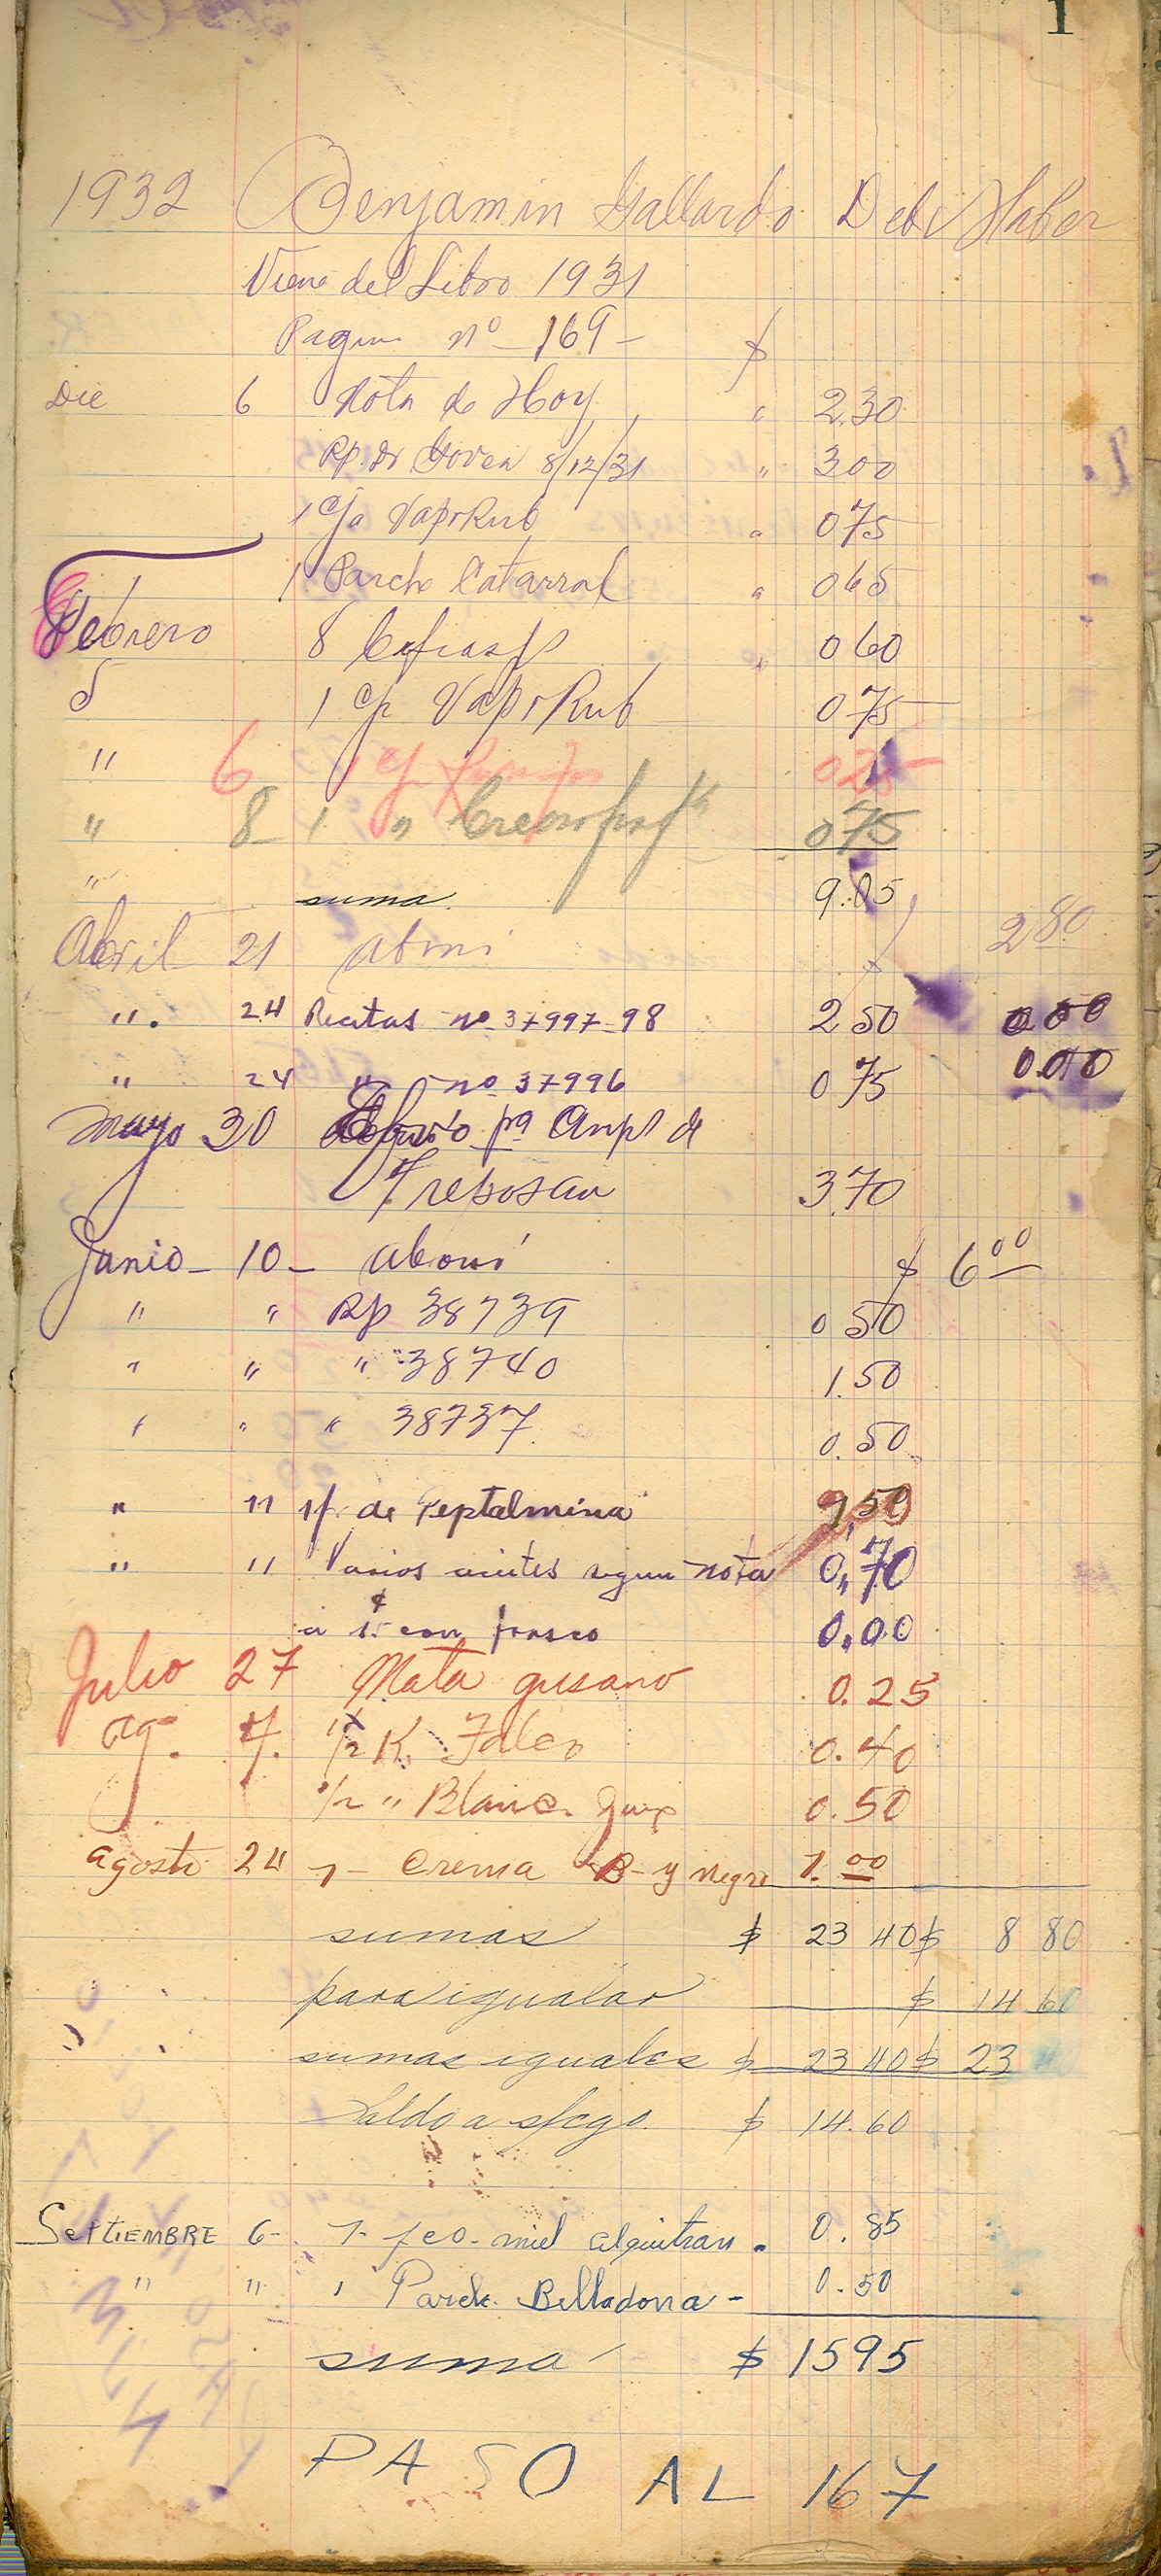 1
1932 Benjamin Gallardo Debe Haber
Viene del Libro 1931
Pagina nº - 169 - $
Dic 6 Nota de Hoy " 2.30
Rp. Dr Govea 8/12/31 " 3 00
1 Cja VapoRub " 0 75
1 Parche Catarral " 0 65
Febrero 8 Cafiasp " 0 60
5 1 cja VapoRub 0 75
" 6 1 0 25
" 8 - 1 " 0 75
" suma. 9.05
Abril 21 Abonó $ 2 80
". 24 Recetas nº 37997-98 2 50
" 24 " nº 37996 0 75
Mayo 30 pª Amps de
Treposan 3.70
Junio - 10 - Abonó $ 6 00
" " Rp 38739 0 50
" " " 38740 1.50
" " " 38737. 0.50
" 11 1f. de Peptalmina 2,50
" 11 Varios aceites segun nota 0,70
a con frasco 0,00
Julio 27 Mata gusano 0.25
Ag. 7. 1/2 K. Talco 0.40
1/2 " Blanc. 0.50
Agosto 24 1 - Crema B - y negro 1.00
sumas $ 23 40 $ 8 80
para igualar $ 14 60
sumas iguales $ 23 40 $ 23
Saldo a s/cgo. $ 14.60
SEPTIEMBRE 6 - 1 - fco. miel alquitran. 0.85
" " 1 Parche Belladona - 0.50
suma $ 15 95
PASO AL 167